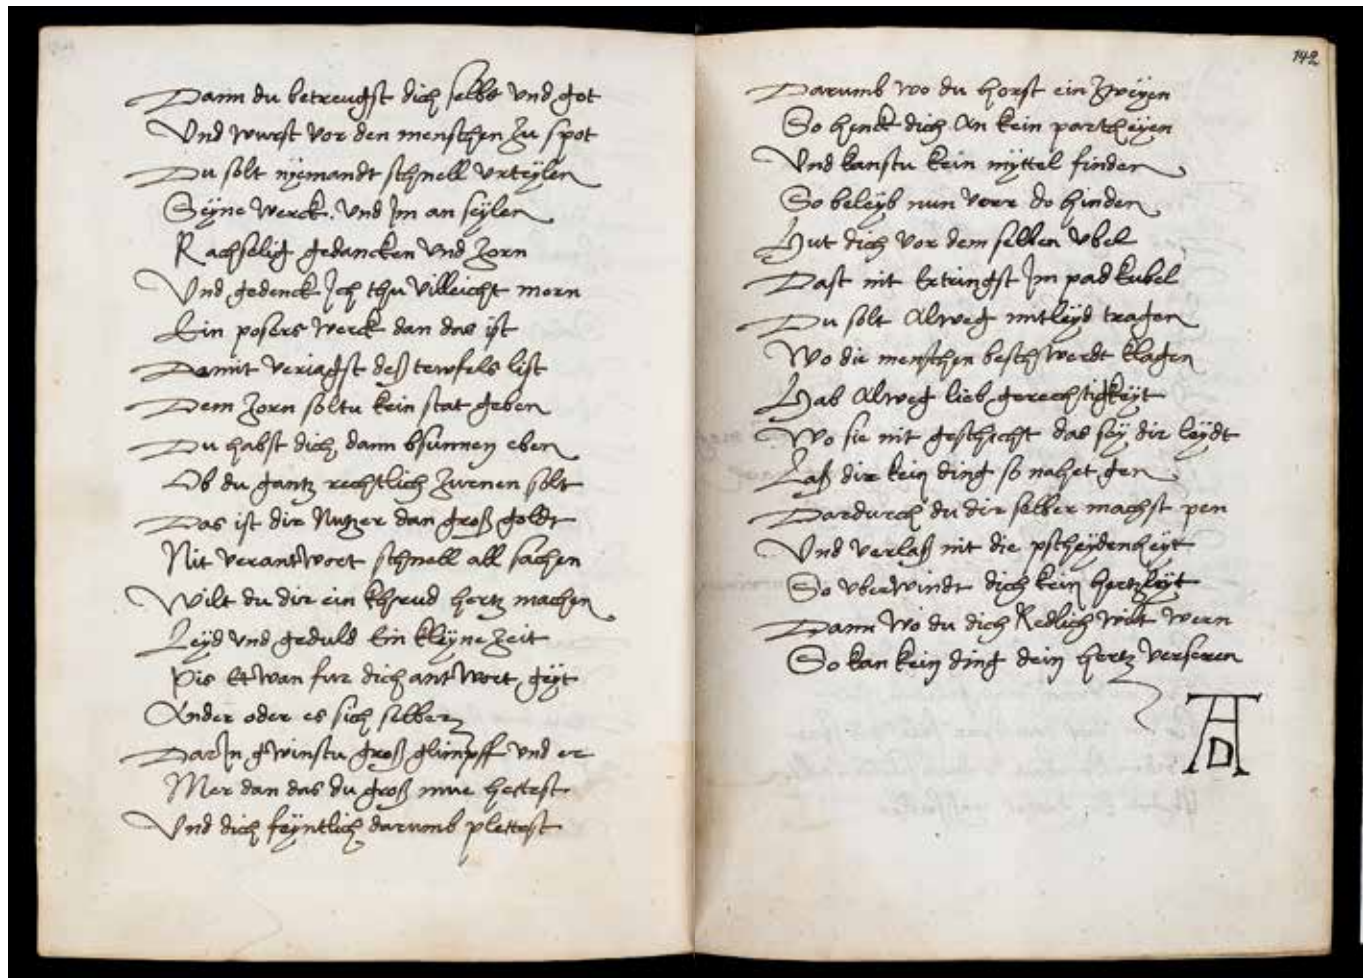 Dann du betreugst dich selbs vnd got
Vnd wurst vor den menschen zu spot
Du solt nÿemandt schnell vrteÿlen
Seÿne werck. vnd Jm an seÿlen
Rachselig gedancken vnd zorn
Vnd gedenck Jch thu villeicht morn
Ein posers werck dan das ist
Damit veriagst deß tewfels list
Dem zorn soltu kein stat geben
Du habst dich dann bsunnen eben
Ob du gantz rechtlich zurnen solt
Das ist dir Nutzer dan groß goldt
Nit verantwort schnell all sachen
Wilt du dir ein khrud hertz machen
Leÿd vnd geduld Ein kleÿne zeit
Pis Etwan fur dich antwort geÿt
Ander oder es sich selber
DarJn gwinstu groß glimpff vnd er
Mer dan das du groß mue hettest
Vnd dich feÿntlich darumb plettest
142
Darumb wo du horst ein zweÿen
So henck dich An kein partheÿen
Vnd kanstu kein mÿttel finden
So beleÿb nun verr do hinden
Hut dich vor dem selben vbel
Dast nit Ertringst Jm padkubel
Du solt Alweg mitleÿd tragen
Wo die menschen beschwerdt klagen
Hab Alweg lieb gerechtigkeÿt
Wo sie nit geschicht das seÿ dir leÿdt
Laß dir kein ding so nahet gen
Dardurch du dir selber machst pen
Vnd verlaß nit die pscheÿdenheÿt
So vberwindt dich kein hertzleÿt
Dann wo du dich Redlich wilt wern
So kan kein ding dein hertz verseren
AD